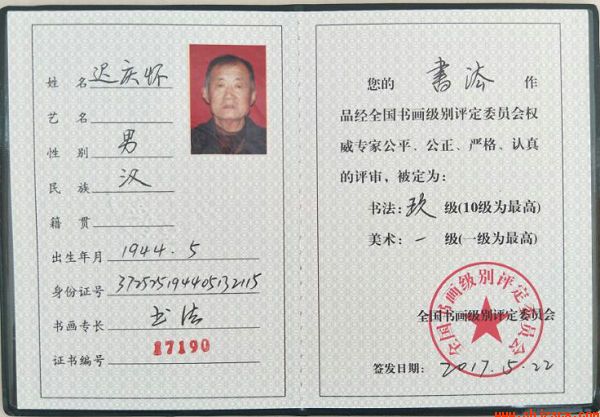 姓名 迟庆怀
艺名
性别 男
民族 汉
籍贯
出生年月 1944.5
身份证号 372525194405132115
书画专长 书法
证书编号 17190
您的 书法 作
品经全国书画级别评定委员会权
威专家公平、公正、严格、认真
的评审，被定为：
书法：玖 级(10级为最高)
美术：一 级(一级为最高)
全国书画级别评定委员会
全国书画级别评定委员会
签发日期：2017.5.22